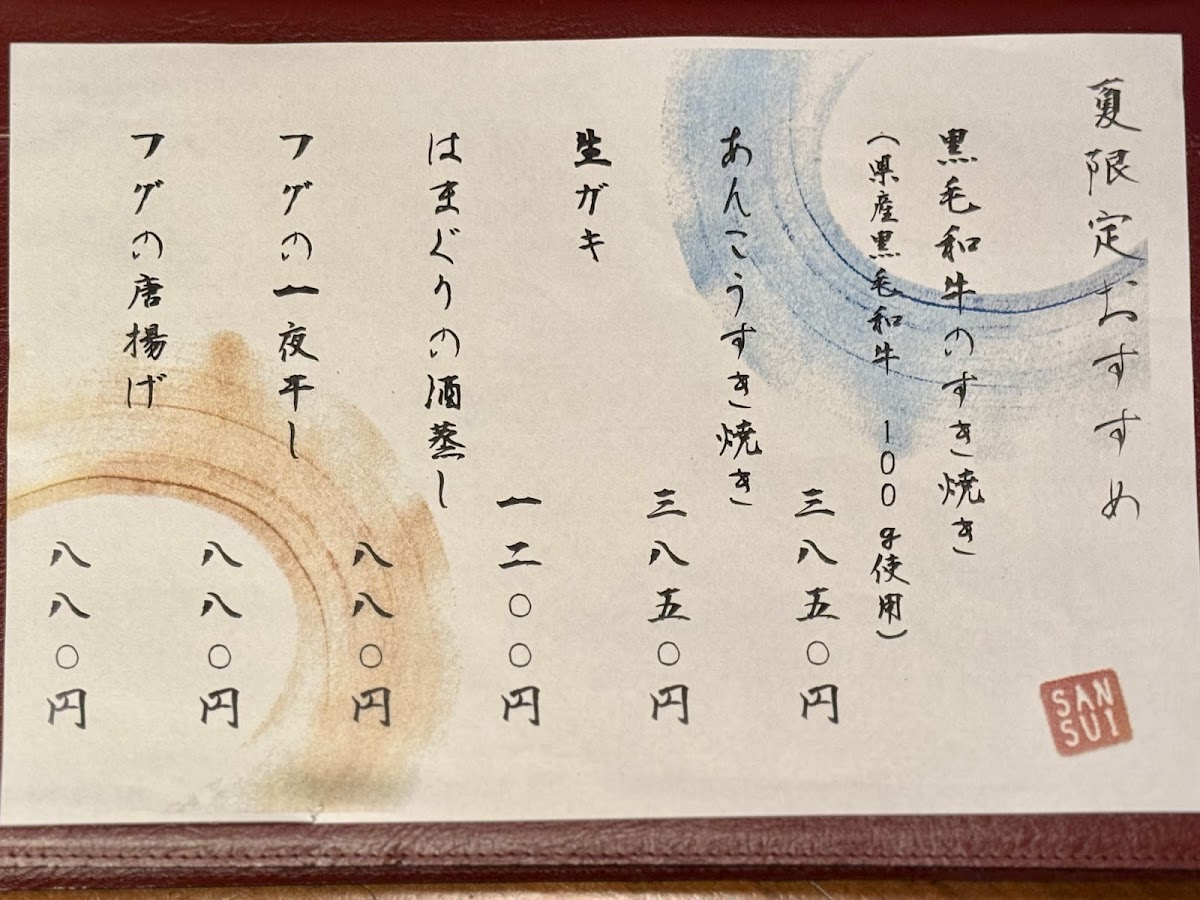 夏限定おすすめ
黒毛和牛のすき焼き
(県産黒毛和牛 100g使用)
三八五〇円
あんこうすき焼き
三八五〇円
生ガキ
一二〇〇円
はまぐりの酒蒸し
八八〇円
フグの一夜干し
八八〇円
フグの唐揚げ
八八〇円
SAN
SUI